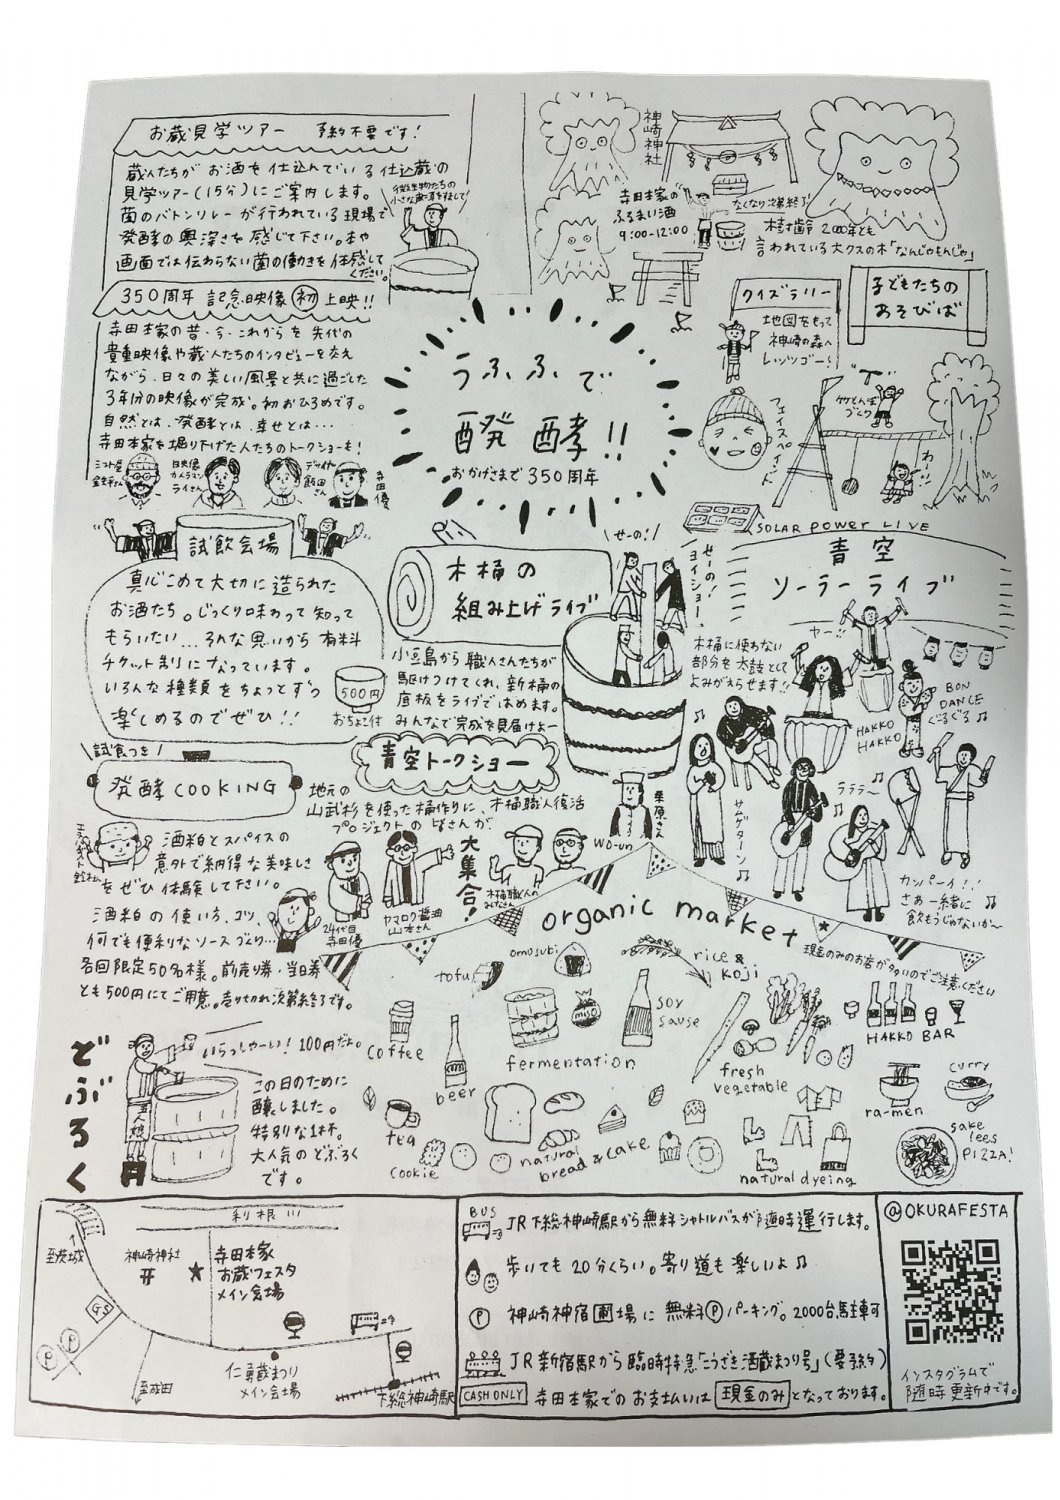 お蔵見学ツアー 予約不要です!
蔵人たちが お酒を仕込んでいる 仕込蔵の
見学ツアー(15分)にご案内します。
菌のバトンリレーが行われている現場で
発酵の奥深さを感じて下さい。本や
画面では伝わらない菌の働きを体感して
ください。
微生物たちの
神崎神社
寺田本家の
ふるまい酒
9:00-12:00
なくなり次第終了
樹齢2000年とも
言われている大クスの木「なんじゃもんじゃ」
350周年 記念映像 初 上映!!
寺田本家の昔・今・これからを 先代の
貴重映像や蔵人たちのインタビューを交え
ながら、日々の美しい風景と共に過ごした
3年分の映像が完成。初おひろめです。
自然とは、発酵とは、幸せとは…
寺田本家を掘り下げた人たちのトークショーも!
飯田さん
寺田優
うふふで
醗酵!!
おかげさまで350周年
クイズラリー
地図をもって
神崎の森へ
レッツゴー!
子どもたちの
あそびば
フェイスペイント
竹とんぼ
づくり
わーい
試飲会場
真心こめて大切に造られた
お酒たち。じっくり味わって知って
もらいたい…そんな思いから有料
チケット制になっています。
いろんな種類をちょっとずつ
楽しめるのでぜひ!!
500円
おちょこ付
木桶の
組み上げライブ
せーの!
せーの!
ヨイショー!
小豆島から職人さんたちが
駆けつけてくれ、新桶の
底板をライブではめます。
みんなで完成を見届けよー
SOLAR POWER LIVE
青空
ソーラーライブ
木桶に使わない
部分を太鼓として
よみがえらせます!!
ヤー!!
HAKKO
HAKKO
BON
DANCE
ぐるぐる♫
サムゲタン〜♫
ラララ〜♫
カンパーイ!!
さあ一緒に
飲もうじゃないか〜
試食つき
発酵COOKING
酒粕とスパイスの
意外で納得な美味しさ
をぜひ体験して下さい。
酒粕の使い方、コツ、
何でも便利なソースづくり…
各回限定50名様。前売り券・当日券
とも500円にてご用意。売り切れ次第終了です。
青空トークショー
地元の
山武杉を使った桶作りに、木桶職人復活
プロジェクトの皆さんが、
大集合!
24代目
寺田優
ヤマロク醤油
山本さん
木桶職人の
みなさん
栗原さん
wo-un
organic market
現金のみのお店が多いのでご注意ください
tofu
omosubi
rice &
KOJI
miso
soy
sause
coffee
beer
fermentation
fresh
vegetable
HAKKO BAR
ra-men
curry
tea
cookie
natural
bread & cake
natural dyeing
sake
lees
PIZZA!
どぶろく
いらっしゃーい! 100円だよ。
この日のために
醸しました。
特別な1杯。
大人気のどぶろく
です。
五人娘
利根川
至茨城
神崎神社
寺田本家
お蔵フェスタ
メイン会場
GS
P
P
至成田
仁勇蔵まつり
メイン会場
下総神崎駅
BUS JR下総神崎駅から無料シャトルバスが随時運行します。
歩いても20分くらい。寄り道も楽しいよ♫
P 神崎神宿圃場に 無料Pパーキング。2000台駐車可
JR新宿駅から臨時特急「こうざき酒蔵まつり号」(要予約)
CASH ONLY 寺田本家でのお支払いは 現金のみ となっております。
@OKURAFESTA
インスタグラムで
随時更新中です。